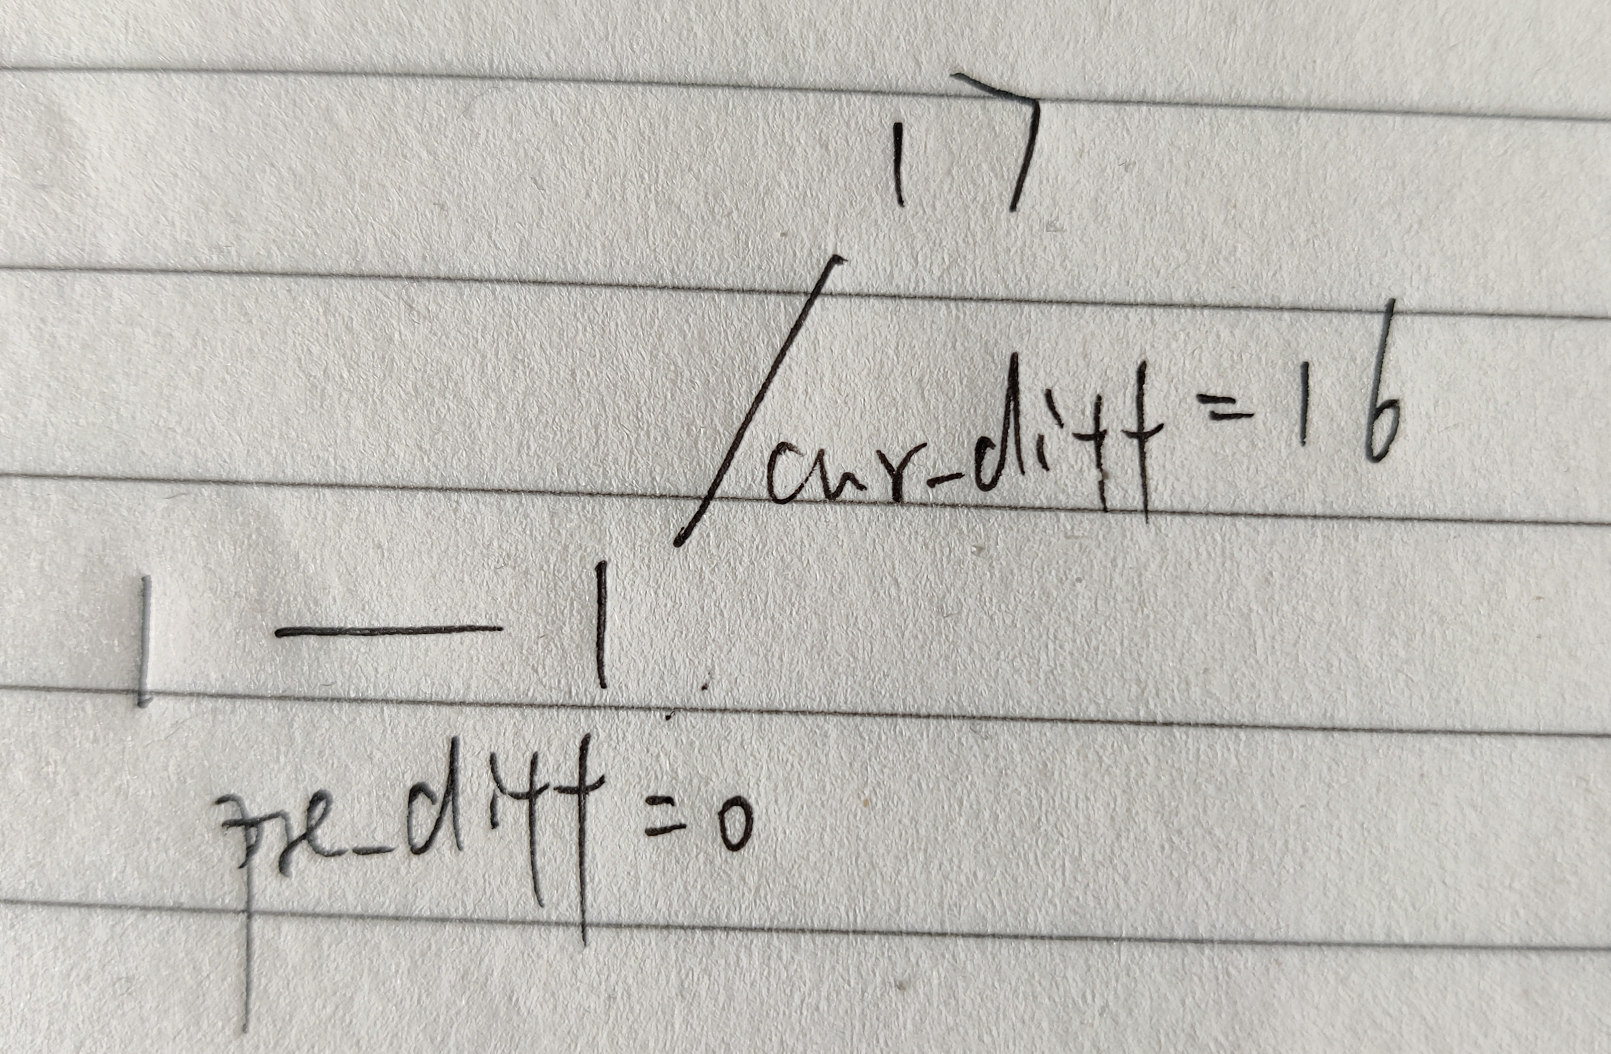 17
cur_diff = 16
1 — 1
pre_diff = 0